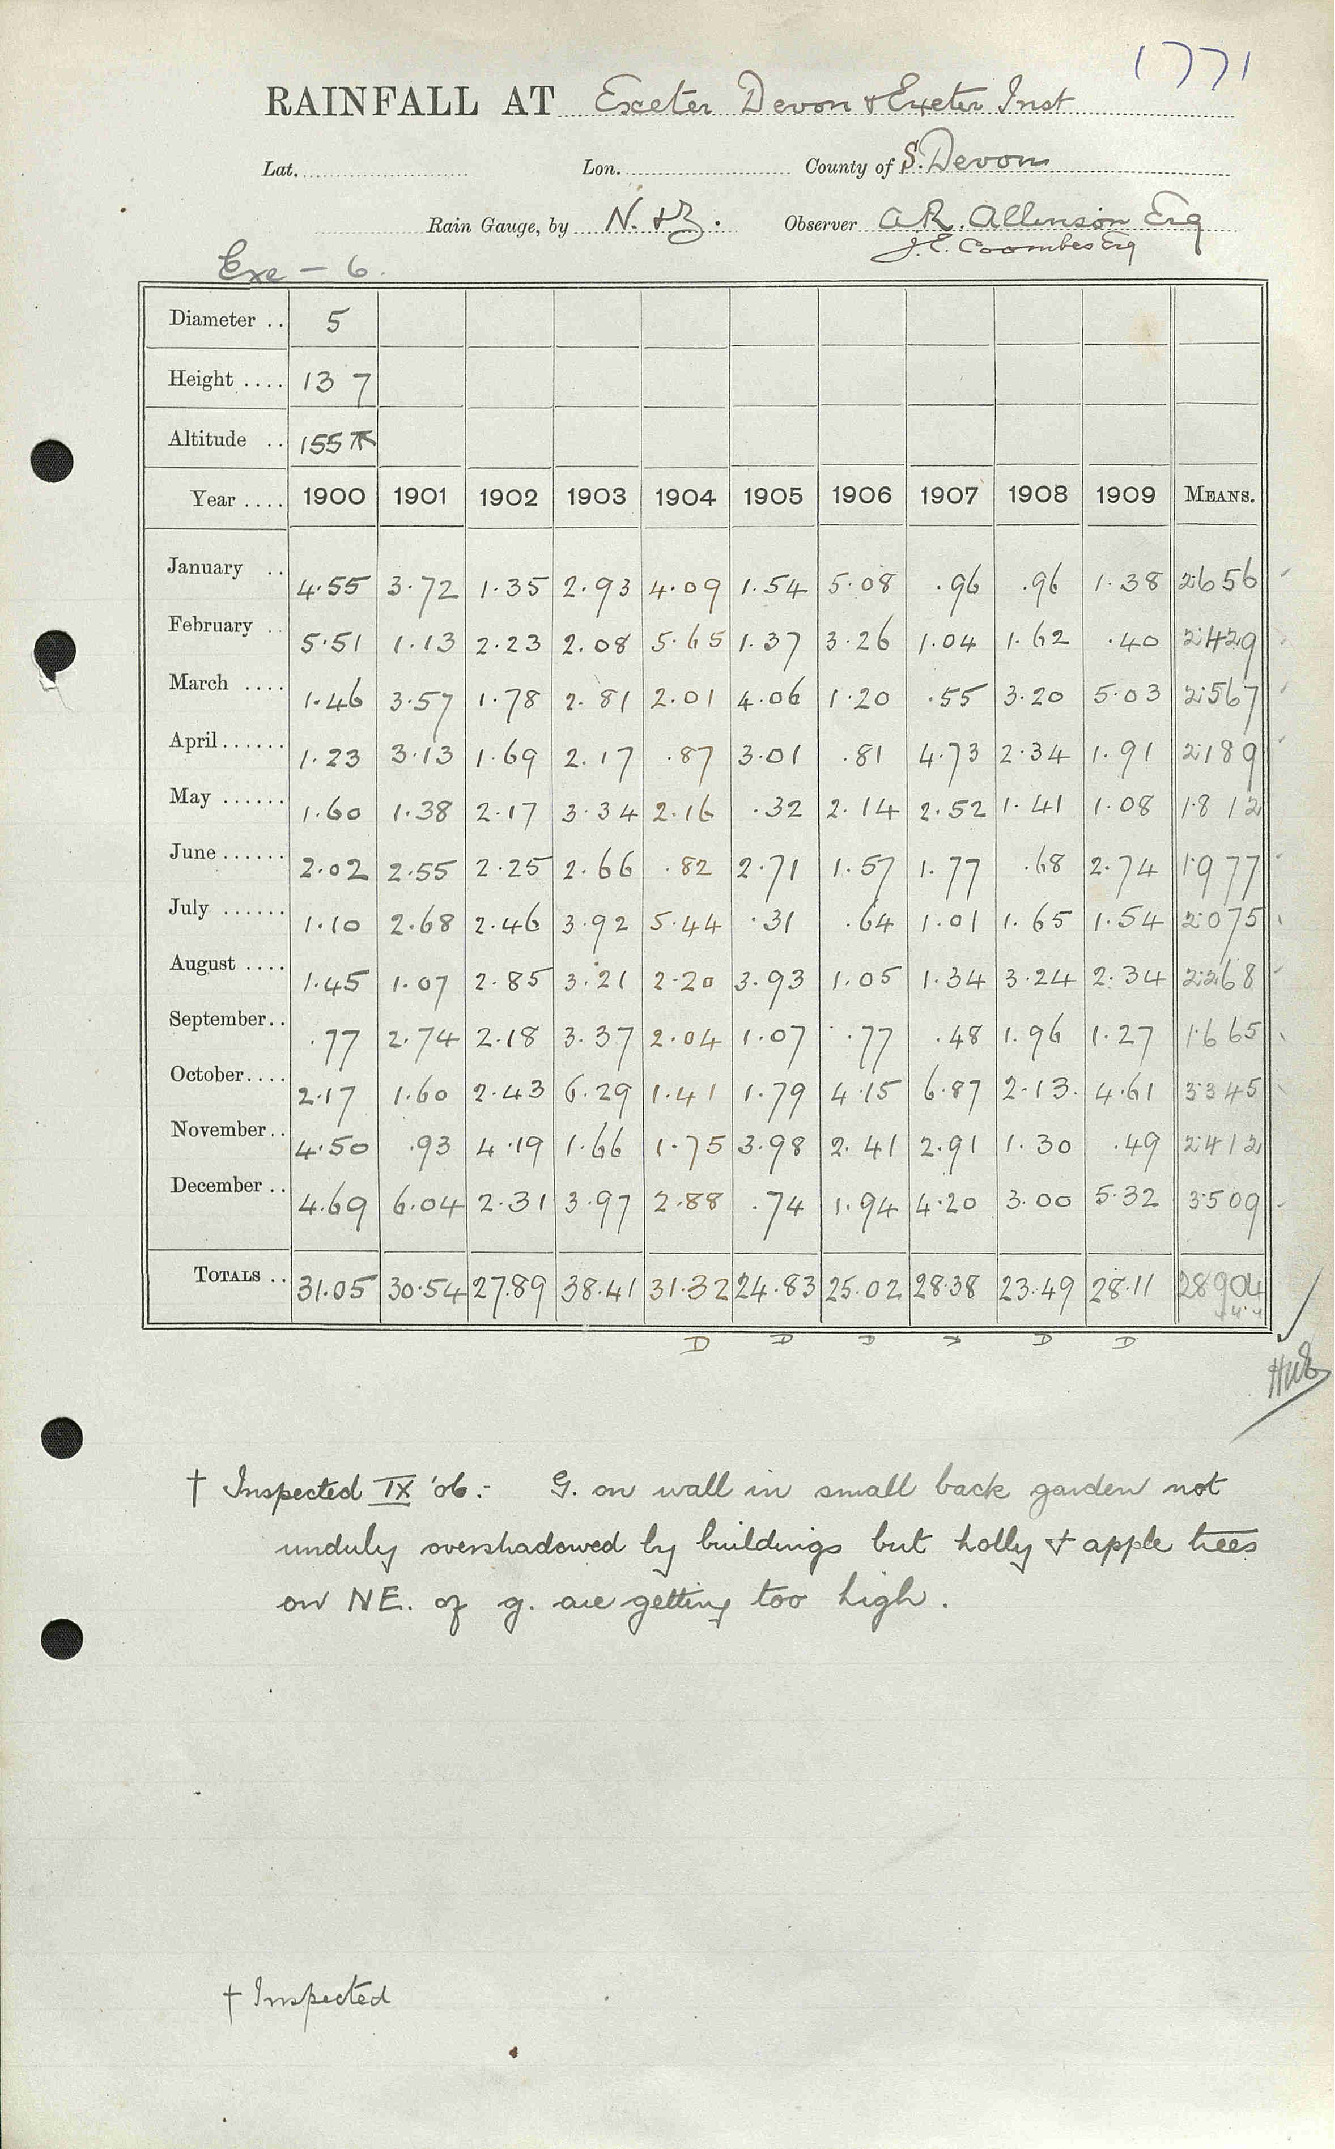 1771
RAINFALL AT Exeter Devon & Exeter Inst
Lat. Lon. County of S. Devon
Rain Gauge, by N. & Z. Observer A.R. Allinson Esq
J.E. Coombes Esq
Exe - 6.
Diameter .. 5
Height .... 13 7
Altitude .. 155
Year .... 1900 1901 1902 1903 1904 1905 1906 1907 1908 1909 MEANS.
January .. 4.55 3.72 1.35 2.93 4.09 1.54 5.08 .96 .96 1.38 2.656
February .. 5.51 1.13 2.23 2.08 5.65 1.37 3.26 1.04 1.62 .40 2.429
March .... 1.46 3.57 1.78 2.81 2.01 4.06 1.20 .55 3.20 5.03 2.567
April...... 1.23 3.13 1.69 2.17 .87 3.01 .81 4.73 2.34 1.91 2.189
May ...... 1.60 1.38 2.17 3.34 2.16 .32 2.14 2.52 1.41 1.08 1.812
June...... 2.02 2.55 2.25 2.66 .82 2.71 1.57 1.77 .68 2.74 1.977
July ...... 1.10 2.68 2.46 3.92 5.44 .31 .64 1.01 1.65 1.54 2.075
August .... 1.45 1.07 2.85 3.21 2.20 3.93 1.05 1.34 3.24 2.34 2.268
September.. .77 2.74 2.18 3.37 2.04 1.07 .77 .48 1.96 1.27 1.665
October.... 2.17 1.60 2.43 6.29 1.41 1.79 4.15 6.87 2.13. 4.61 3.345
November.. 4.50 .93 4.19 1.66 1.75 3.98 2.41 2.91 1.30 .49 2.412
December .. 4.69 6.04 2.31 3.97 2.88 .74 1.94 4.20 3.00 5.32 3.509
TOTALS .. 31.05 30.54 27.89 38.41 31.32 24.83 25.02 28.38 23.49 28.11 28904
D D D D D D
† Inspected IX '06:- G. on wall in small back garden not
unduly overshadowed by buildings but holly & apple trees
on NE. of g. are getting too high.
† Inspected